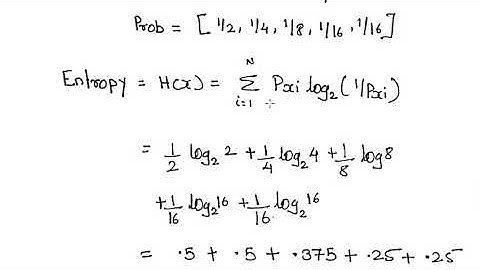 Prob = [ 1/2, 1/4, 1/8, 1/16, 1/16 ]
Entropy = H(x) = N∑i=1 Pxi log2 (1/Pxi)
= 1/2 log2 2 + 1/4 log2 4 + 1/8 log 8
+ 1/16 log2 16 + 1/16 log2 16
= .5 + .5 + .375 + .25 + .25